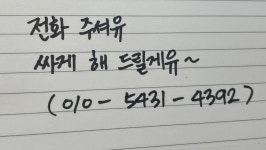 전화 주셔유
싸게 해 드릴게유~
(010-5431-4392)